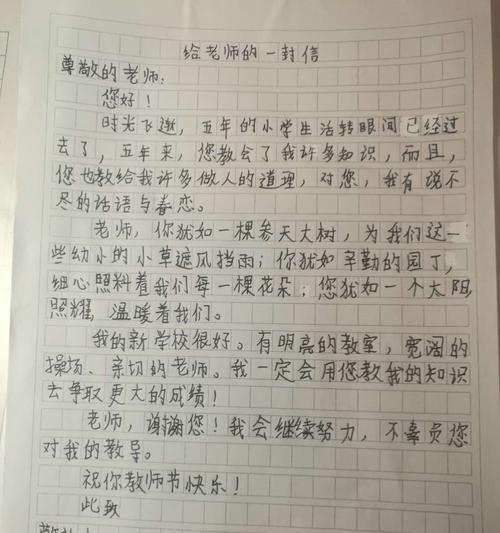 给老师的一封信
尊敬的老师:
您好!
时光飞逝，五年的小学生活转眼间已经过
去了，五年来，您教会了我许多知识，而且，
您也教给我许多做人的道理，对您，我有说不
尽的话语与眷恋。
老师，你犹如一棵参天大树，为我们这一
些幼小的小草遮风挡雨；你犹如辛勤的园丁，
细心照料着我们每一棵花朵；您犹如一个太阳
照耀，温暖着我们。
我的新学校很好。有明亮的教室，宽阔的
操场、亲切的老师。我一定会用您教我的知识
去争取更大的成绩!
老师，谢谢您!我会继续努力，不辜负您
对我的教导。
祝你教师节快乐!
此致